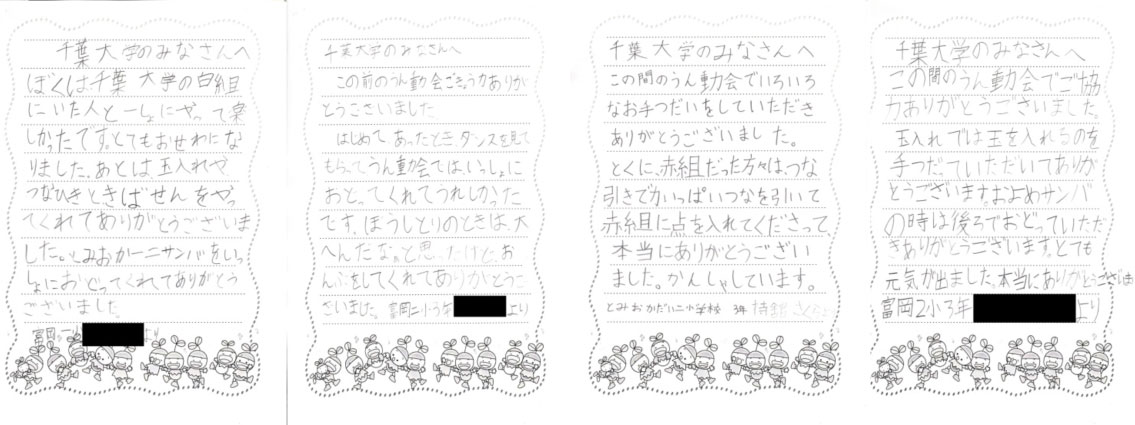 千葉大学のみなさんへ
ぼくは千葉大学の白組
にいた人と一しょにやって楽
しかったです。とてもおせわにな
りました。あとは玉入れや
つなひきときばせんをやっ
てくれてありがとうございま
した。とみおかーニサンバをいっ
しょにおどってくれてありがとう
ございました
富岡二小
より
千葉大学のみなさんへ
この前のうん動会ごきょう力ありが
とうございました
はじめてあったときダンスを見て
もらってうん動会では、いっしょに
おどってくれてうれしかった
です。ほうしとりのときは、大
へんだな。と思ったけど、お
んぶをしてくれてありがとうご
ざいました。富岡二小3年
より
千葉大学のみなさんへ
この間のうん動会でいろいろ
なお手つだいをしていただき
ありがとうございました。
とくに、赤組だった方々は、つな
引きで力いっぱいつなを引いて
赤組に点を入れてくださって、
本当にありがとうござい
ました。かんしゃしています。
とみおかだい二小学校 3年
千葉大学のみなさんへ
この間のうん動会でご協
力ありがとうございました。
玉入れでは玉を入れるのを
手つだっていただいてありが
とうございます。およめサンバ
の時は後ろでおどっていただ
きありがとうございます。とても
元気が出ました。本当にありがとうございま
富岡2小3年
より